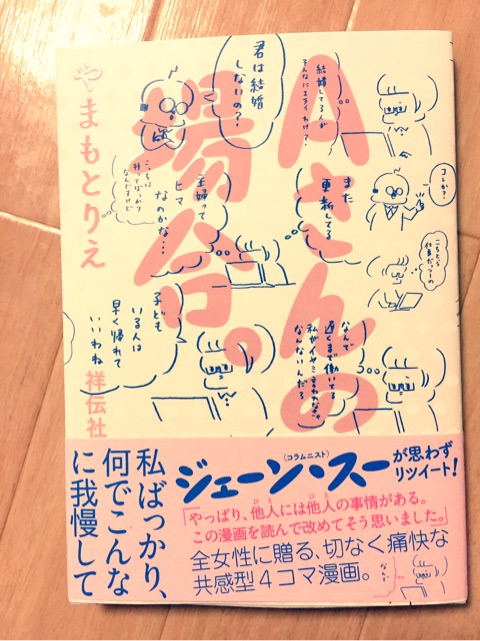 Aさんの
場合。
やまもとりえ
祥伝社
君は結婚
しないの？
結婚してる人が
そんなにエライわけ？
また
更新してる
主婦って
ヒマ
なのかな…
コレか？
こちとら
仕事だっつーの
子ども
いる人は
早く帰れて
いいわね
なんで
遅くまで働いてる
私がイヤミ言われなきゃ
なんないんだろ
私ばっかり、
何でこんな
に我慢して
(コラムニスト)
ジェーン・スーが思わず
リツイート！
「やっぱり、他人には他人の事情がある。
この漫画を読んで改めてそう思いました。」
全女性に贈る、切なく痛快な
共感型4コマ漫画。